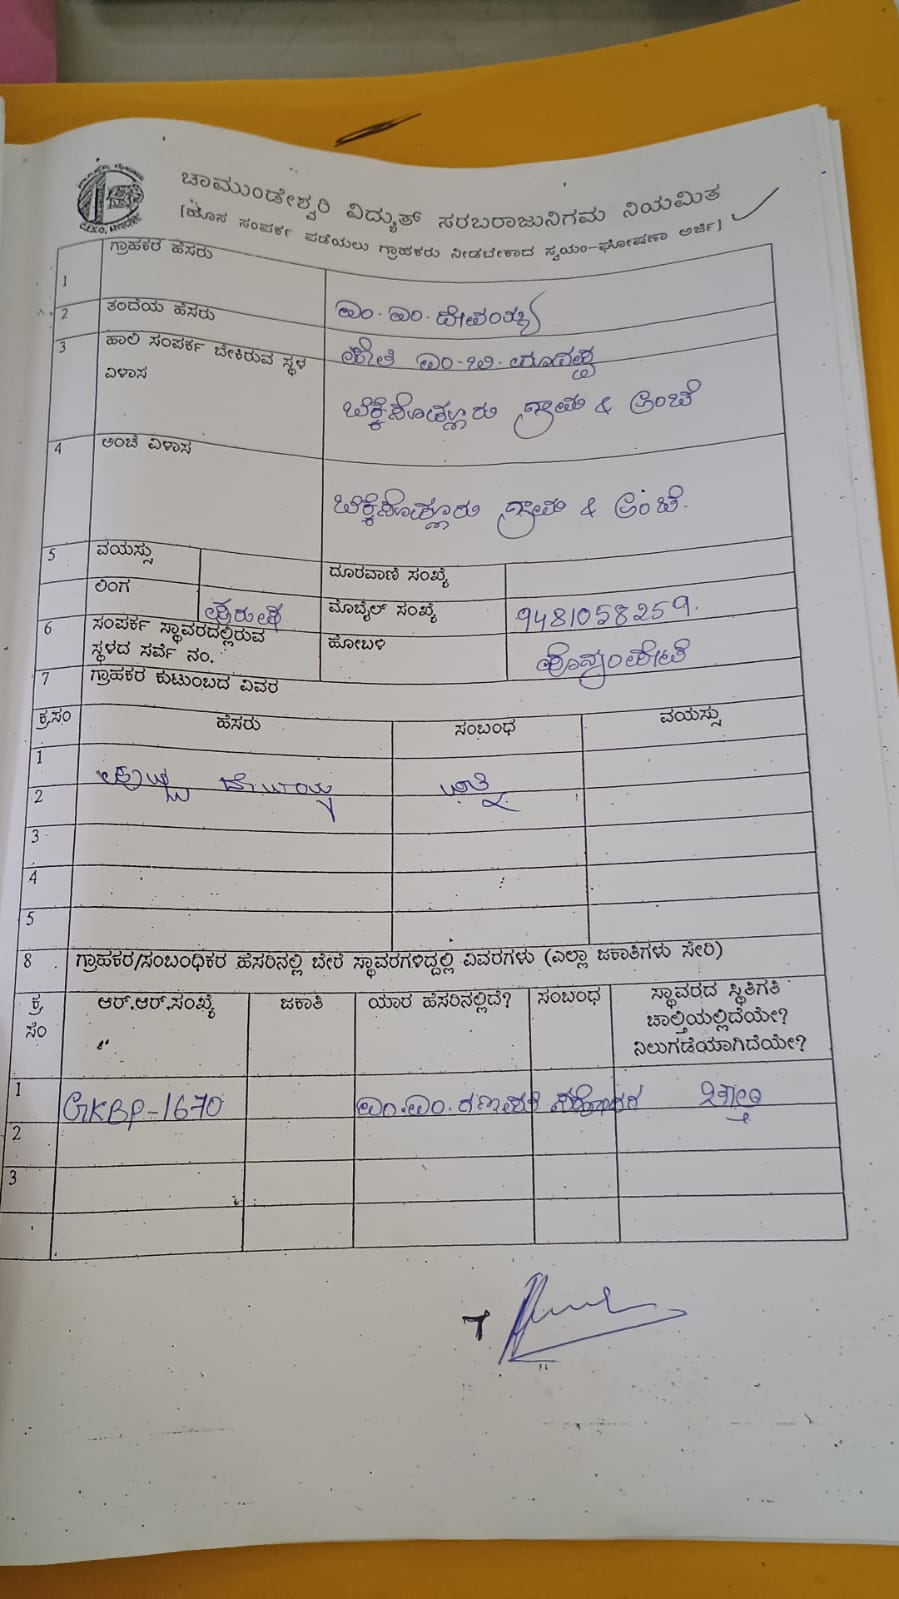 ಚಾಮುಂಡೇಶ್ವರಿ ವಿದ್ಯುತ್ ಸರಬರಾಜುನಿಗಮ ನಿಯಮಿತ
[ಹೊಸ ಸಂಪರ್ಕ ಪಡೆಯಲು ಗ್ರಾಹಕರು ನೀಡಬೇಕಾದ ಸ್ವಯಂ-ಘೋಷಣಾ ಅರ್ಜಿ]
1 ಗ್ರಾಹಕರ ಹೆಸರು ಎಂ.ಎಂ.
2 ತಂದೆಯ ಹೆಸರು
3 ಹಾಲಿ ಸಂಪರ್ಕ ಬೇಕಿರುವ ಸ್ಥಳ
ವಿಳಾಸ ಗ್ರಾಮ & ಅಂಚೆ
4 ಅಂಚೆ ವಿಳಾಸ ಗ್ರಾಮ & ಅಂಚೆ.
5 ವಯಸ್ಸು ದೂರವಾಣಿ ಸಂಖ್ಯೆ
ಲಿಂಗ ಪುರುಷ ಮೊಬೈಲ್ ಸಂಖ್ಯೆ 9481058259.
6 ಸಂಪರ್ಕ ಸ್ಥಾವರದಲ್ಲಿರುವ ಹೋಬಳಿ
ಸ್ಥಳದ ಸರ್ವೆ ನಂ.
7 ಗ್ರಾಹಕರ ಕುಟುಂಬದ ವಿವರ
ಕ್ರ.ಸಂ ಹೆಸರು ಸಂಬಂಧ ವಯಸ್ಸು
1 ಪತ್ನಿ
2
3
4
5
8 ಗ್ರಾಹಕರ/ಸಂಬಂಧಿಕರ ಹೆಸರಿನಲ್ಲಿ ಬೇರೆ ಸ್ಥಾವರಗಳಿದ್ದಲ್ಲಿ ವಿವರಗಳು (ಎಲ್ಲಾ ಜಕಾತಿಗಳು ಸೇರಿ)
ಕ್ರ ಆರ್.ಆರ್.ಸಂಖ್ಯೆ ಜಕಾತಿ ಯಾರ ಹೆಸರಿನಲ್ಲಿದೆ? ಸಂಬಂಧ ಸ್ಥಾವರದ ಸ್ಥಿತಿಗತಿ
ಸಂ ಚಾಲ್ತಿಯಲ್ಲಿದೆಯೇ?
ನಿಲುಗಡೆಯಾಗಿದೆಯೇ?
1 GKBP-1670 ಎಂ.ಎಂ. ಗಣಪತಿ ಸಹೋದರ
2
3